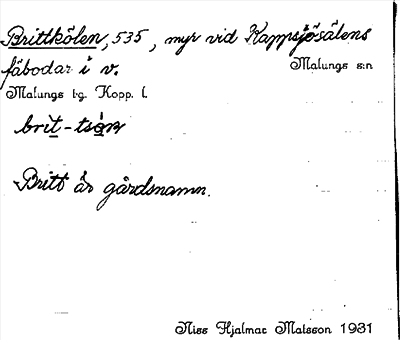 Brittkölen, 535, myr vid Kappsjösälens
fäbodar i v.
Malungs s:n
Malungs tg. Kopp. l.
brit-tsön
Britt är gårdsnamn.
Niss Hjalmar Matsson 1931